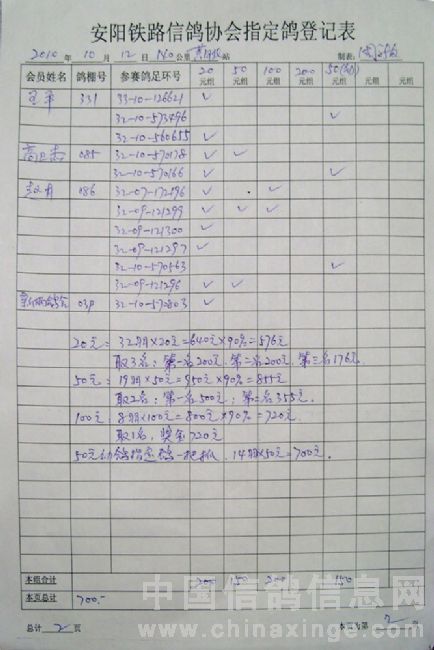 安阳铁路信鸽协会指定鸽登记表
2010 年 10 月 12 日 140 公里 站 制表:
会员姓名 鸽棚号 参赛鸽足环号 20元组 50元组 100元组 200元组 50(幼)元组 元组 元组
王平 331 33-10-126621 ✓
32-10-573496 ✓
32-10-560655 ✓
085 32-10-570178 ✓ ✓
32-10-570166 ✓ ✓
086 32-07-172496 ✓ ✓
32-09-121299 ✓ ✓ ✓
32-09-121300 ✓
32-09-121297 ✓
32-10-570563 ✓
32-09-121296 ✓ ✓
030 32-10-570803 ✓
20元: 32羽×20元=640元×90%=576元
取3名: 第一名200元. 第二名200元. 第三名176元.
50元: 19羽×50元=950元×90%=855元
取2名: 第一名500元; 第二名355元.
100元: 8羽×100元=800元×90%=720元
取1名, 奖金720元
50元幼鸽指定鸽一把抓. 14羽×50元=700元.
本组合计 200 150 200 150
本页总计 700.-
总计 2 页 本页为第 2 页
中国信鸽信息网
www.chinaxinge.com